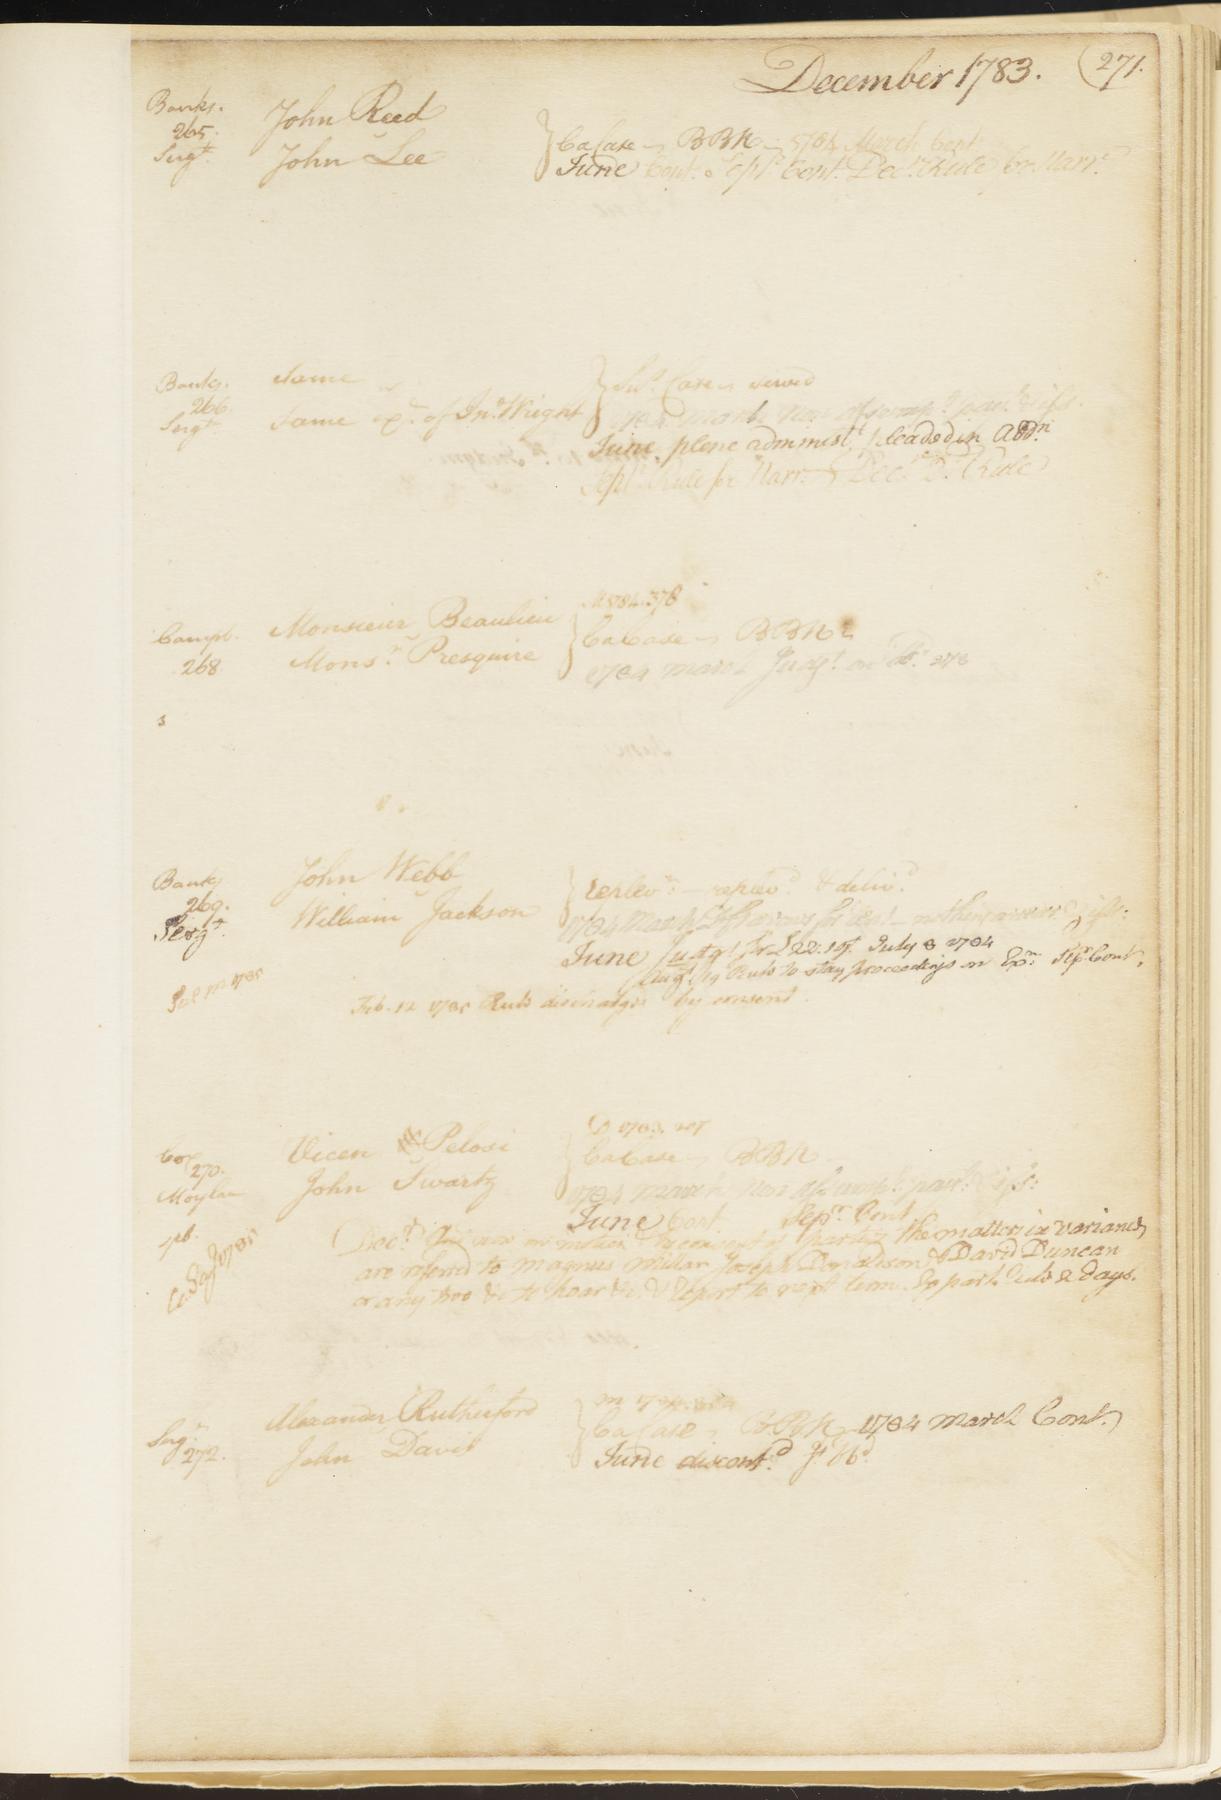 December 1783. (271.
Banks.
265.
Sergt.
John Reed
John Lee
Ca Case — BBK — 1784 March Cont.
June Cont. Sept. Cont. Decr. Rule for Narr.
Banks.
266.
Sergt.
Same
Same exr. of Jno. Wright
Case served
1784 March non assump. paymt. Iss.
June plene administ. pleaded in addn.
Sept. Rule for Narr. Decr. Do. Rule
Campb.
268
Monsieur Beaulieu
Monsr. Presquire
M 1784. 378
Ca Case — BBK
1784 March Judgt. 378
Banks
269.
Sergt.
John Webb
William Jackson
replevn. — replevd. & delivd.
1784 March nothing in arrear Iss.
June Judgt. for £22: July 8 1784
Augt. 19 Rule to stay proceedings on Exn. Sepr. Cont.
Feb. 12 1785 Rule discharged by consent.
Cox
270.
Moylan
Vicen Pelosi
John Swartz
Ca Case — BBK
1784 March non assumpt. paymt. Iss.
June Cont. Sepr. Cont.
Decr. on motion by consent of parties the matters in variance
are referred to Magnus Millar Joseph Donaldson & David Duncan
or any two &c to hear &c. & Report to next term. Ex parte rule 2 days.
Serg.
272.
Alexander Rutherford
John Davis
Ca Case — BBK 1784 March Cont.
June discontd.